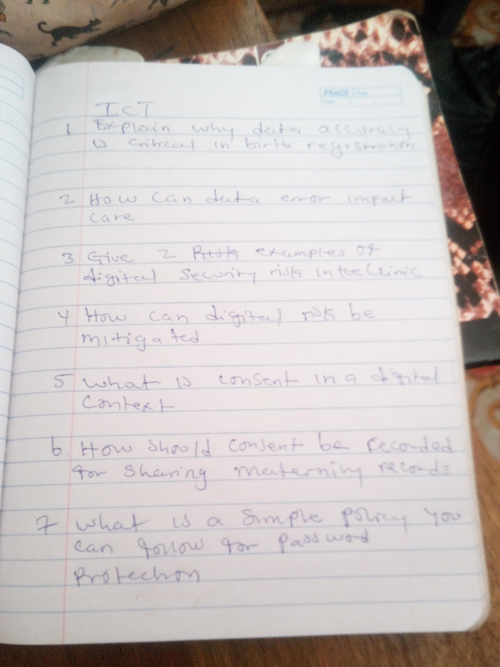 PEACE
ICT
1 Explain why data accuracy
is critical in birth registration
2 How can data error impact
care
3 Give 2 Risk examples of
digital security risk in the clinic
4 How can digital risk be
mitigated
5 What is consent in a digital
context
6 How should consent be recorded
for sharing maternity records
7 What is a simple policy you
can follow for password
protection